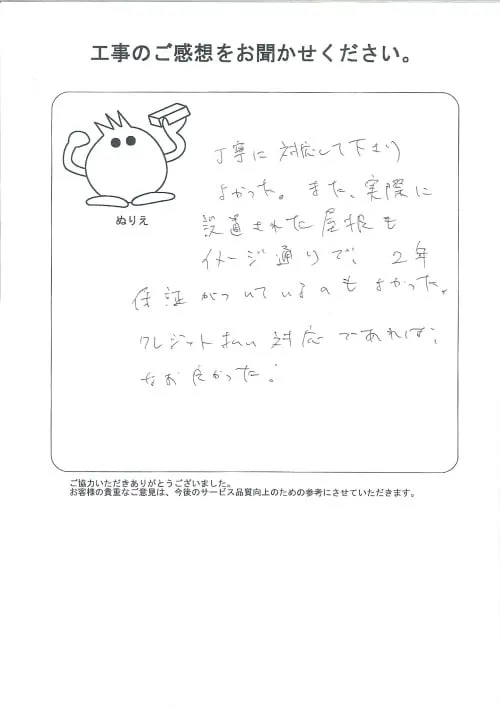 工事のご感想をお聞かせください。
ぬりえ
丁寧に対応して下さり
よかった。また、実際に
設置された屋根も
イメージ通りで、2年
保証がついているのもよかった。
クレジット払い対応であれば、
なお良かった!
ご協力いただきありがとうございました。
お客様の貴重なご意見は、今後のサービス品質向上のための参考にさせていただきます。